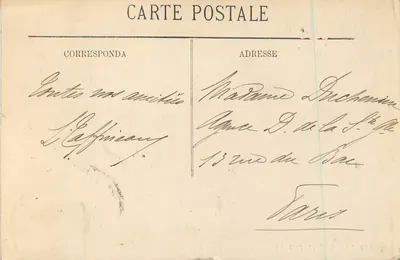 CARTE POSTALE
CORRESPONDA
ADRESSE
Toutes nos amitiés
Madame
Agence D. de la Sté Gle
13 rue du Bac
Paris